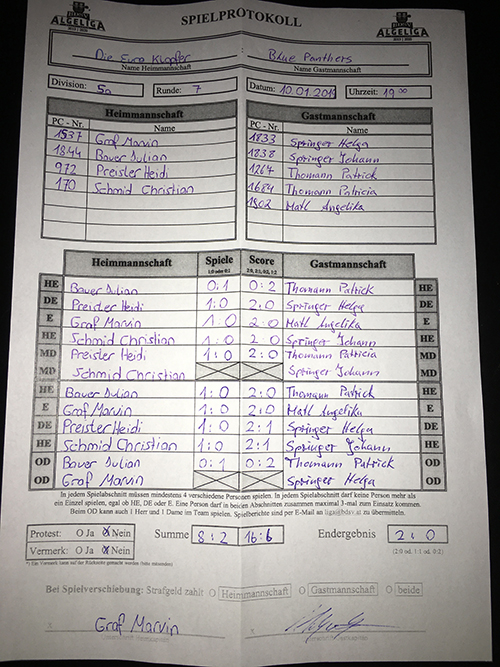 SPIELPROTOKOLL
ALGELIGA ALGELIGA
Die Euro Klopfer Blue Panthers
Name Heimmannschaft Name Gastmannschaft
Division: 5a Runde: 7 Datum: 10.01.2019 Uhrzeit: 19 00
Heimmannschaft Gastmannschaft
PC - Nr. Name PC - Nr. Name
1537 Graf Marvin 1833 Springer Helga
1844 Bauer Julian 1838 Springer Johann
972 Preister Heidi 1267 Thomann Patrick
170 Schmid Christian 1684 Thomann Patricia
1902 Matl Angelika
Heimmannschaft Spiele Score Gastmannschaft
1:0 oder 0:1 2:0, 2:1, 0:2, 1:2
HE Bauer Julian 0:1 0:2 Thomann Patrick HE
DE Preister Heidi 1:0 2:0 Springer Helga DE
E Graf Marvin 1:0 2:0 Matl Angelika E
HE Schmid Christian 1:0 2:0 Springer Johann HE
MD Preister Heidi 1:0 2:0 Thomann Patricia MD
MD Schmid Christian Springer Johann MD
HE Bauer Julian 1:0 2:0 Thomann Patrick HE
E Graf Marvin 1:0 2:0 Matl Angelika E
DE Preister Heidi 1:0 2:1 Springer Helga DE
HE Schmid Christian 1:0 2:1 Springer Johann HE
OD Bauer Julian 0:1 0:2 Thomann Patrick OD
OD Graf Marvin Springer Helga OD
In jedem Spielabschnitt müssen mindestens 4 verschiedene Personen spielen. In jedem Spielabschnitt darf keine Person mehr als
ein Einzel spielen, egal ob HE, DE oder E. Eine Person darf in beiden Abschnitten zusammen maximal 3-mal zum Einsatz kommen.
Beim OD kann auch 1 Herr und 1 Dame im Team spielen. Spielberichte sind per E-Mail an liga@bdsv.at zu übermitteln.
Protest: O Ja X Nein Summe 8:2 16:6 Endergebnis 2:0
Vermerk: O Ja X Nein (2:0 od. 1:1 od. 0:2)
*) Ein Vermerk kann auf der Rückseite gemacht werden (bitte umwenden)
Bei Spielverschiebung: Strafgeld zahlt O Heimmannschaft O Gastmannschaft O beide
Graf Marvin